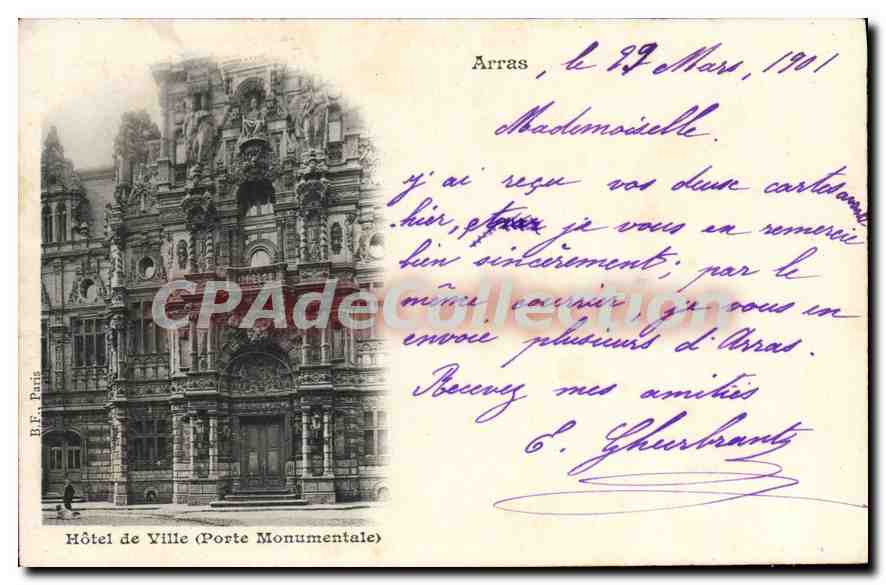 Arras, le 29 Mars, 1901
Mademoiselle.
j'ai reçu vos deux cartes avant
hier, et je vous en remercie
bien sincèrement; par le
même courrier, je vous en
envoie plusieurs d'Arras.
Recevez mes amitiés
E. Gheerbrant
CPADeCollection.com
B.F., Paris
Hôtel de Ville (Porte Monumentale)